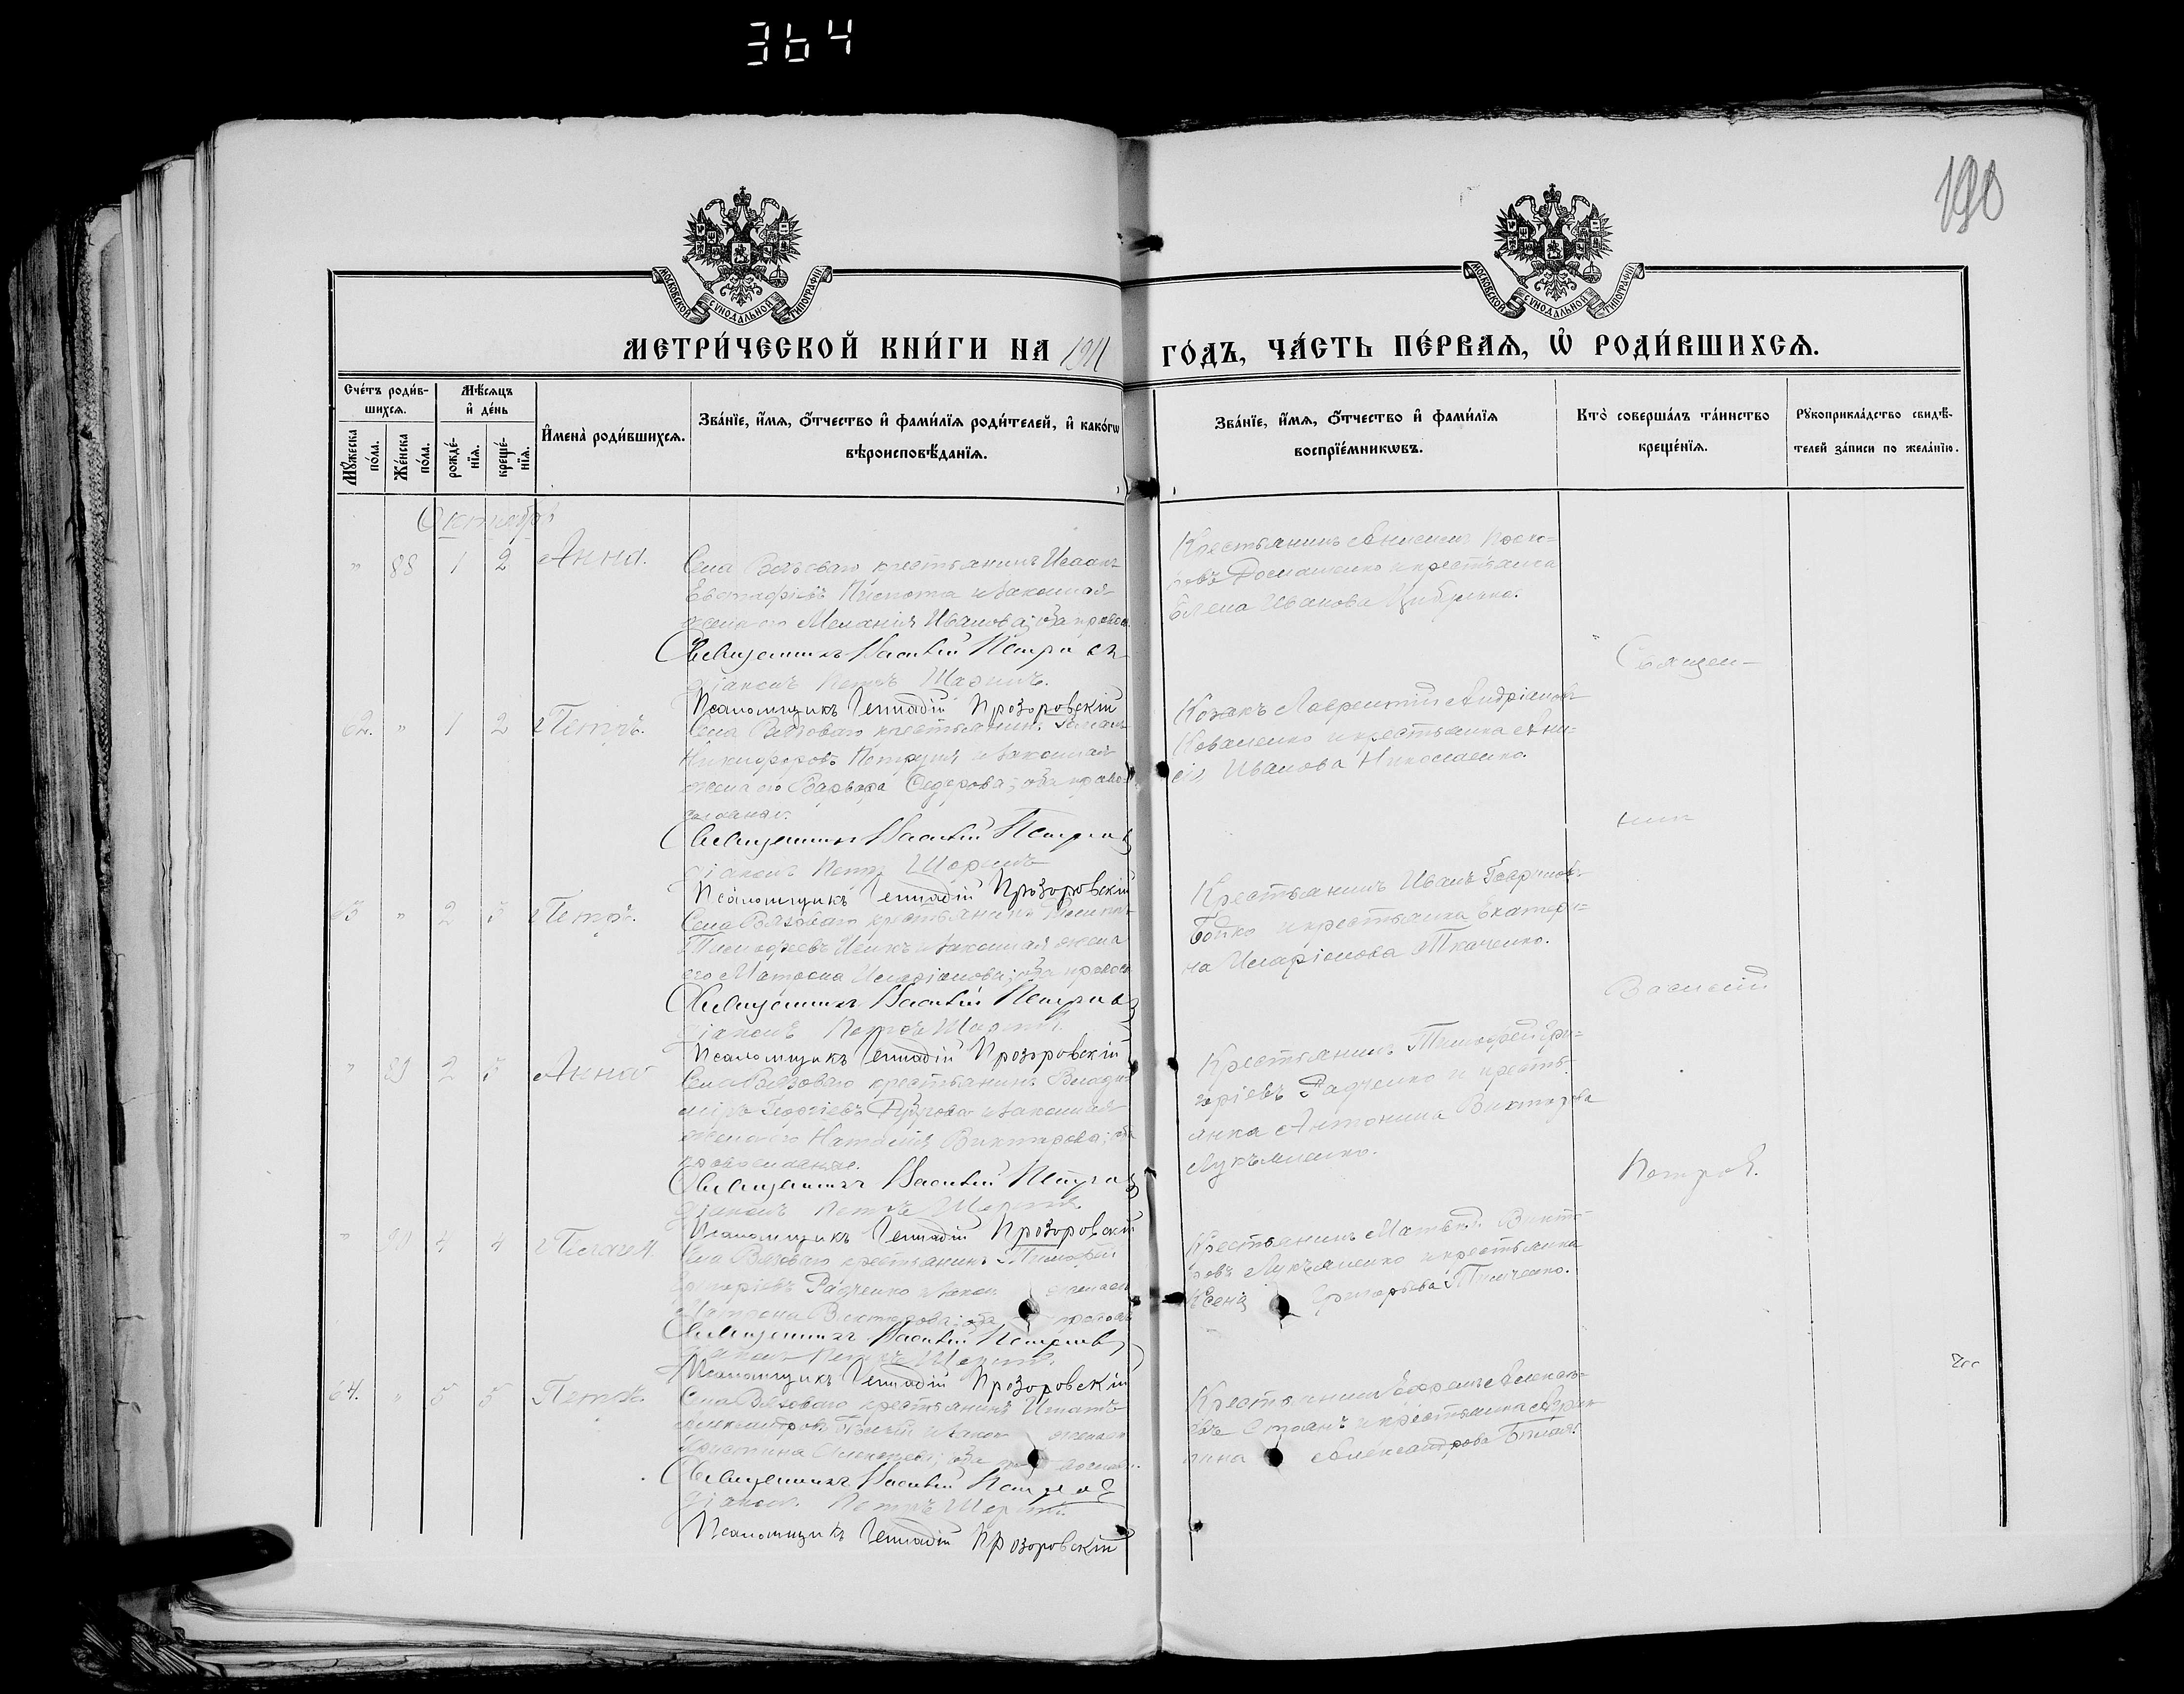 364
190
МОСКОВСКОЙ СѴНОДАЛЬНОЙ ТИПОГРАФІИ
МОСКОВСКОЙ СѴНОДАЛЬНОЙ ТИПОГРАФІИ
МЕТРИ́ЧЕСКОЙ КНИ́ГИ НА 1911 ГО́ДЪ, ЧА́СТЬ ПЕ́РВАЯ, Ѡ҆ РОДИ́ВШИХСЯ.
Сче́тъ роди́в-
шихся.
Мѣ́сяцъ
и҆ де́нь
Мꙋ́жеска
по́ла.
Же́нска
по́ла.
рожде́-
нїя.
креще́-
нїя.
И҆мена̀ роди́вшихся.
Зва́нїе, и҆́мя, ѻ҆́тчество и҆ фами́лїя роди́телей, и҆ како́гѡ
вѣроисповѣ́данїя.
Зва́нїе, и҆́мя, ѻ҆́тчество и҆ фами́лїя
воспрїе́мникѡвъ.
Кто̀ соверша́лъ та́инство
креще́нїя.
Рꙋкоприкла́дство свидѣ́-
телей за́писи по жела́нїю.
Октябрь
" 88 1 2 Анна.
Села Вязоваго крестьянинъ Исаакъ
Евстафіевъ и законная
жена его Меланія Иванова; оба правосл.
Священникъ Василій Петровъ
Діаконъ Петръ
Псаломщикъ Геннадій Прозоровскій
Крестьянинъ Анисимъ
Домашенко и крестьянка
Елена Иванова
62. " 1 2 Петръ.
Села Вязоваго крестьянинъ
Никифоровъ и законная
жена его Варвара Федорова; оба право-
славные.
Священникъ Василій Петровъ
Діаконъ Петръ
Псаломщикъ Геннадій Прозоровскій
Козакъ Лаврентій Андріановъ
Коваленко и крестьянка Ани-
сія Иванова Николаенко.
63 " 2 3 Петръ.
Села Вязоваго крестьянинъ
Тимофеевъ и законная жена
его Матрона Иларіонова; оба правосл
Священникъ Василій Петровъ
Діаконъ Петръ
Псаломщикъ Геннадій Прозоровскій
Крестьянинъ Иванъ Гавриловъ
Бойко и крестьянка Екатери-
на Иларіонова Ткаченко.
" 89 2 3 Анна
Села Вязоваго крестьянинъ Влади-
міръ Георгіевъ и законная
жена его Наталія Викторова; оба
православные.
Священникъ Василій Петровъ
Діаконъ Петръ
Псаломщикъ Геннадій Прозоровскій
Крестьянинъ Тимофей Гри-
горіевъ Радченко и кресть-
янка Антонина Викторова
Лукъяненко.
" 90 4 4 Пелагея
Села Вязоваго крестьянинъ Тимофей
Григоріевъ Радченко и закон жена его
Матрона Викторова; оба правосл
Священникъ Василій Петровъ
Діаконъ Петръ
Псаломщикъ Геннадій Прозоровскій
Крестьянинъ Матвей Викто-
ровъ Лукъяненко и крестьянка
Ксенія Григорьева
64. " 5 5 Петръ.
Села Вязоваго крестьянинъ Игнатъ
Александровъ Бѣлый и закон жена его
Христина Алексеева; оба
Священникъ Василій Петровъ
Діаконъ Петръ
Псаломщикъ Геннадій Прозоровскій
Крестьянинъ Ефремъ
и крестьянка
Александрова Бѣлая.
Священ-
никъ
Василій
Петровъ.